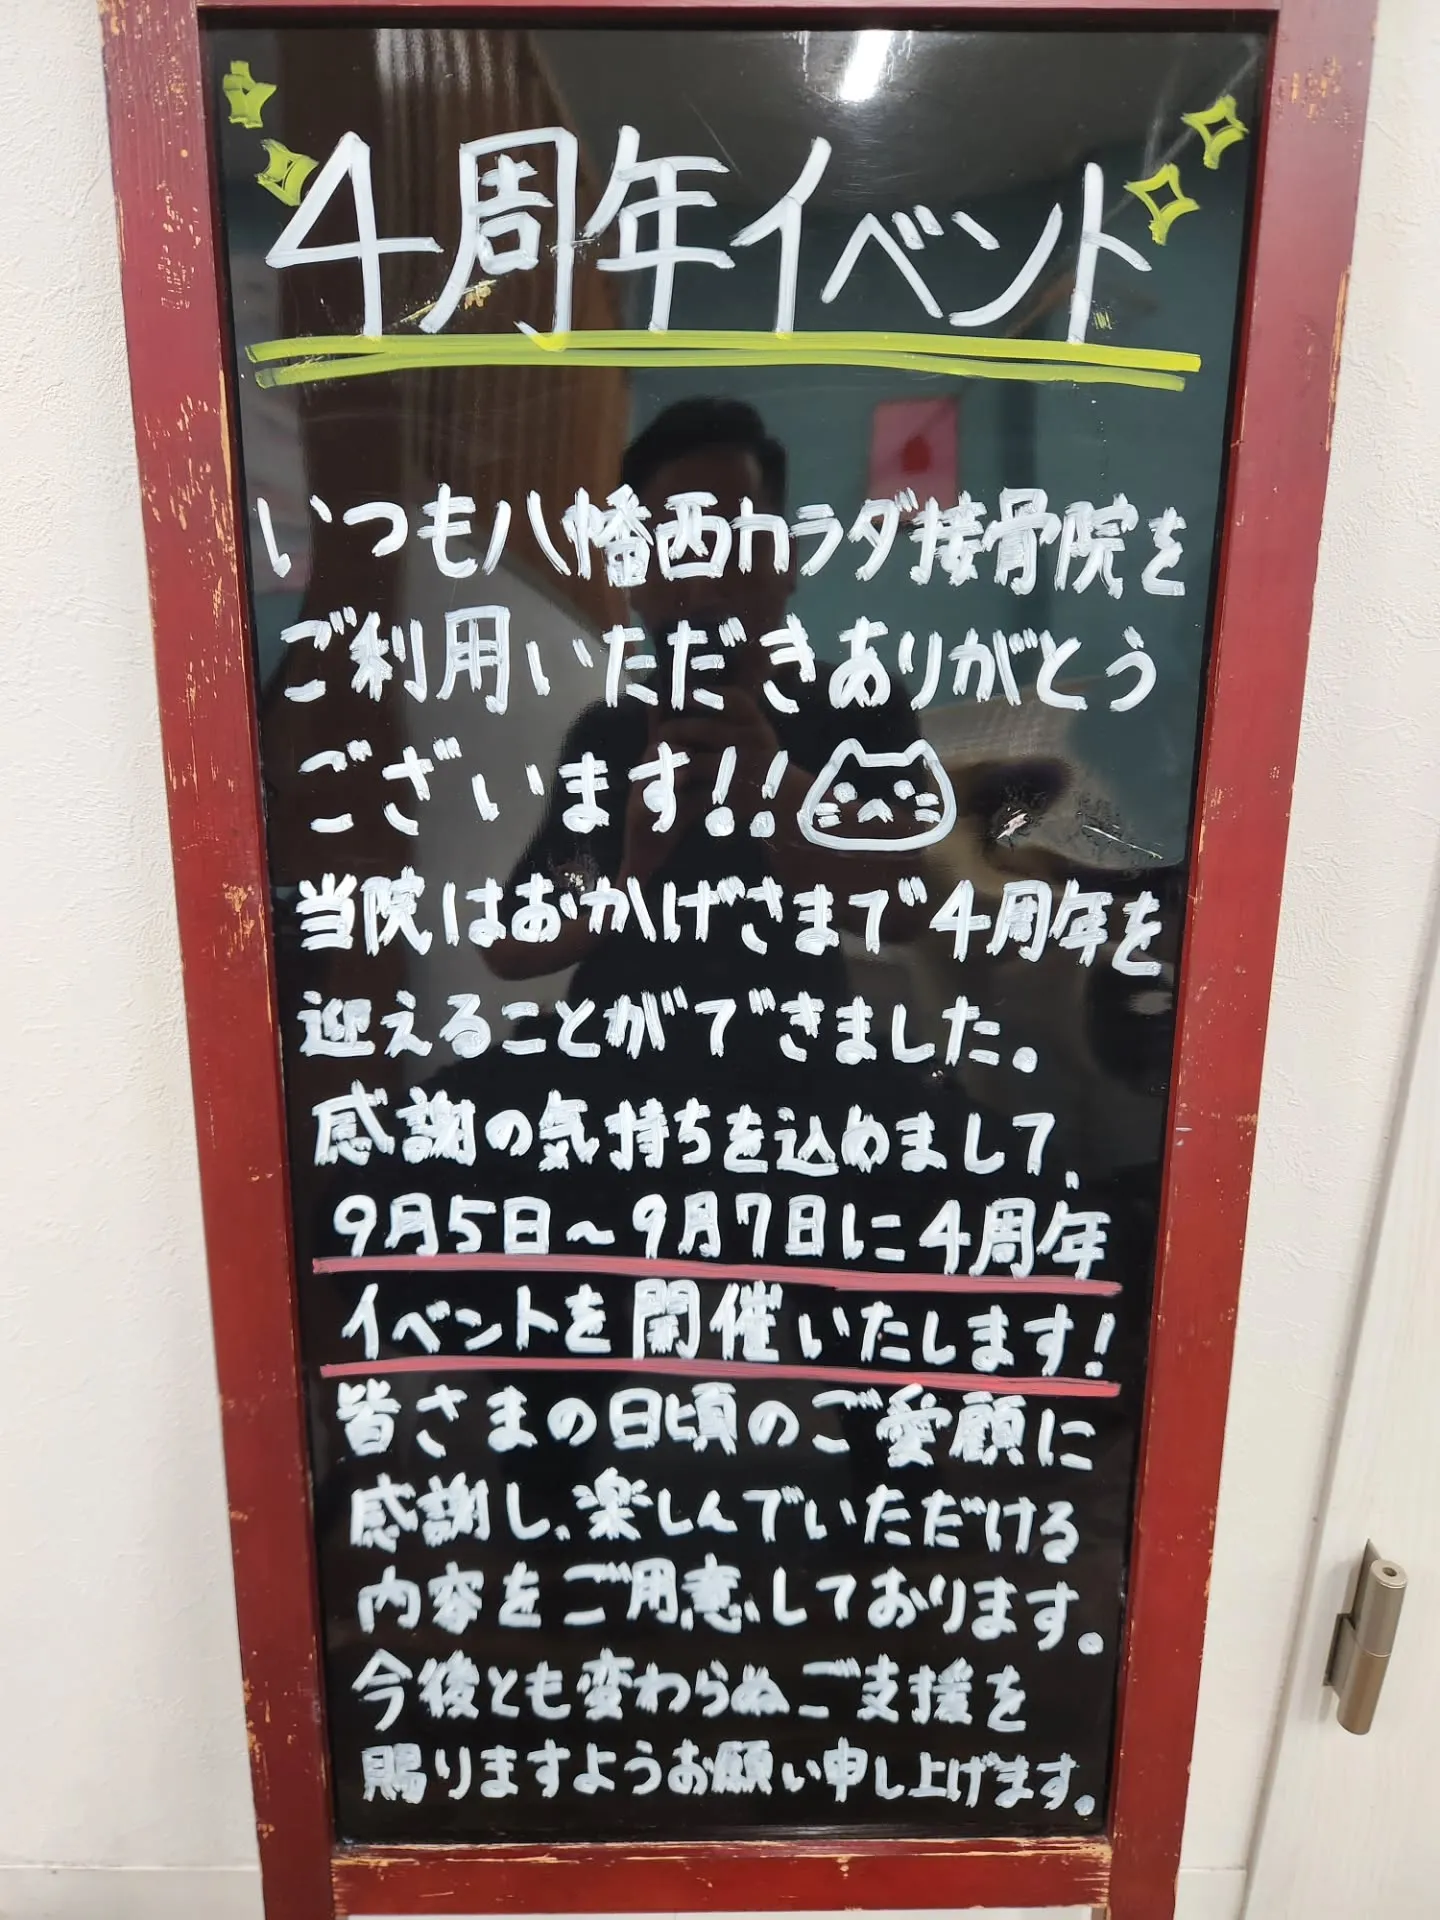 4周年イベント
いつも八幡西カラダ接骨院を
ご利用いただきありがとう
ございます!!
当院はおかげさまで4周年を
迎えることができました。
感謝の気持ちを込めまして、
9月5日~9月7日に4周年
イベントを開催いたします!
皆さまの日頃のご愛顧に
感謝し、楽しんでいただける
内容をご用意しております。
今後とも変わらぬご支援を
賜りますようお願い申し上げます。